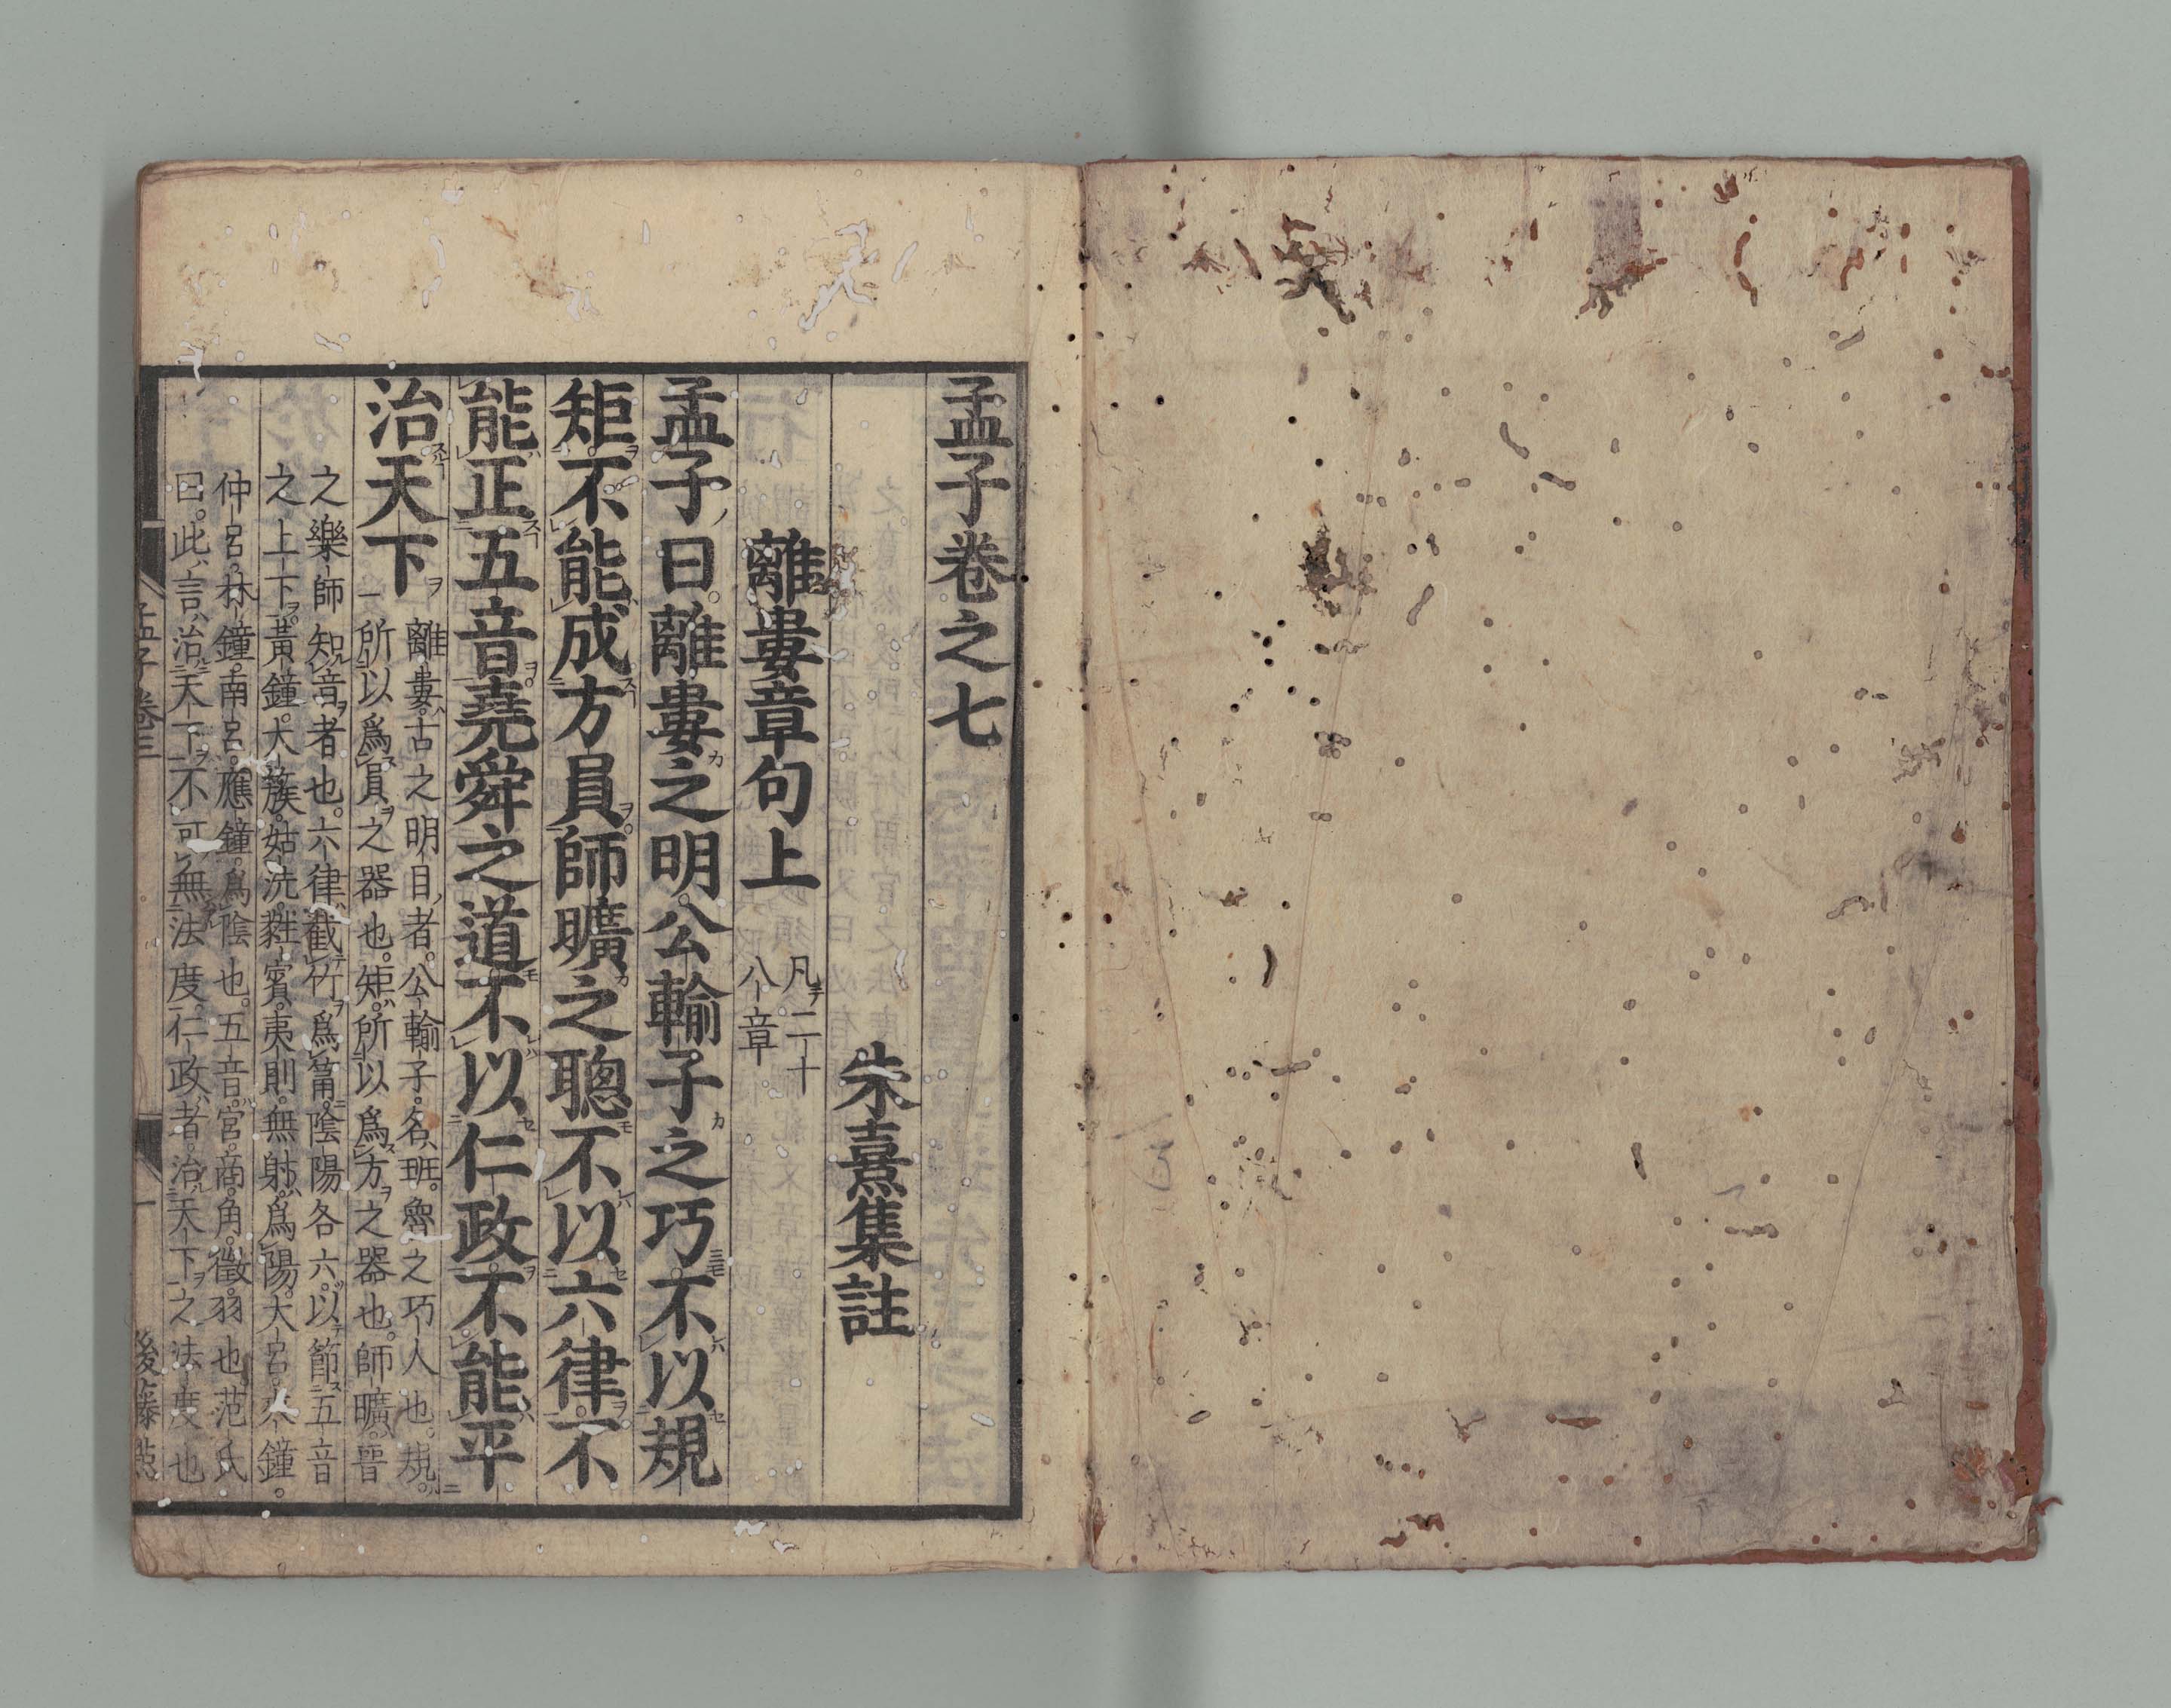 孟子卷之七
朱熹集註
離婁章句上
凡二十
八章
孟子曰離婁之明公輸子之巧不以規
矩不能成方員師曠之聰不以六律不
能正五音堯舜之道不以仁政不能平
治天下
離婁古之明目者公輸子名班魯之巧人也規
所以爲員之器也矩所以爲方之器也師曠晉
之樂師知音者也六律截竹爲筩陰陽各六以節五音
之上下黃鐘大簇姑洗蕤賓夷則無射爲陽大呂夾鐘
仲呂林鐘南呂應鐘爲陰也五音宮商角徵羽也范氏
曰此言治天下不可無法度仁政者治天下之法度也
孟子卷三
一
後藤點